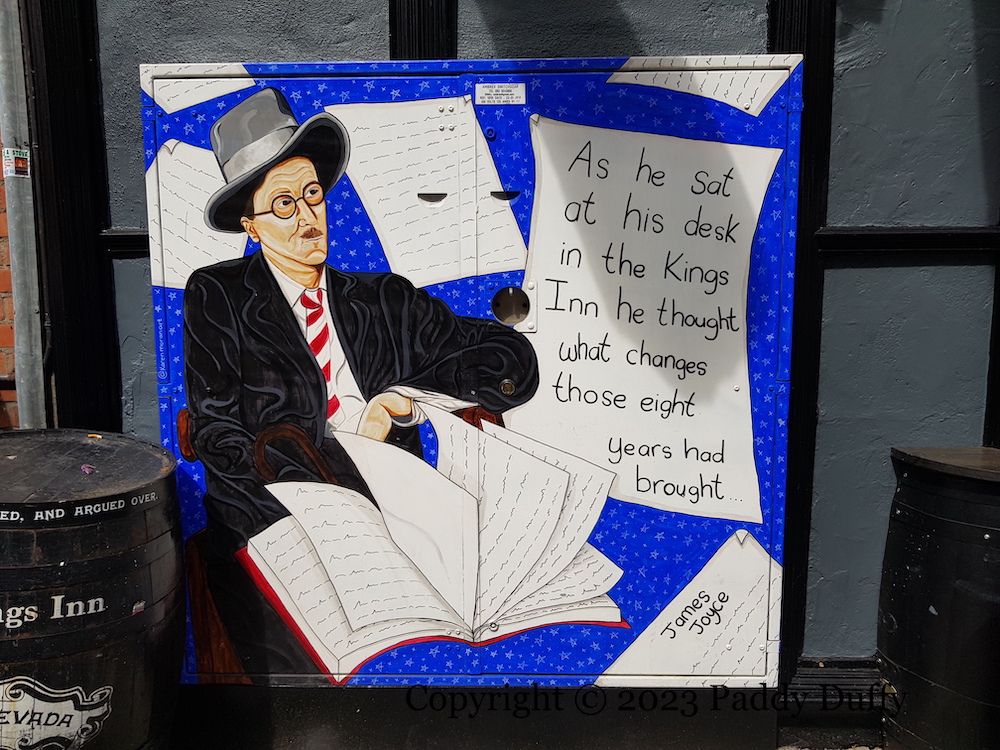 As he sat
at his desk
in the Kings
Inn he thought
what changes
those eight
years had
brought...
James
Joyce
@karenmoranart
ED, AND ARGUED OVER.
ngs Inn
EVADA
Copyright © 2023 Paddy Duffy